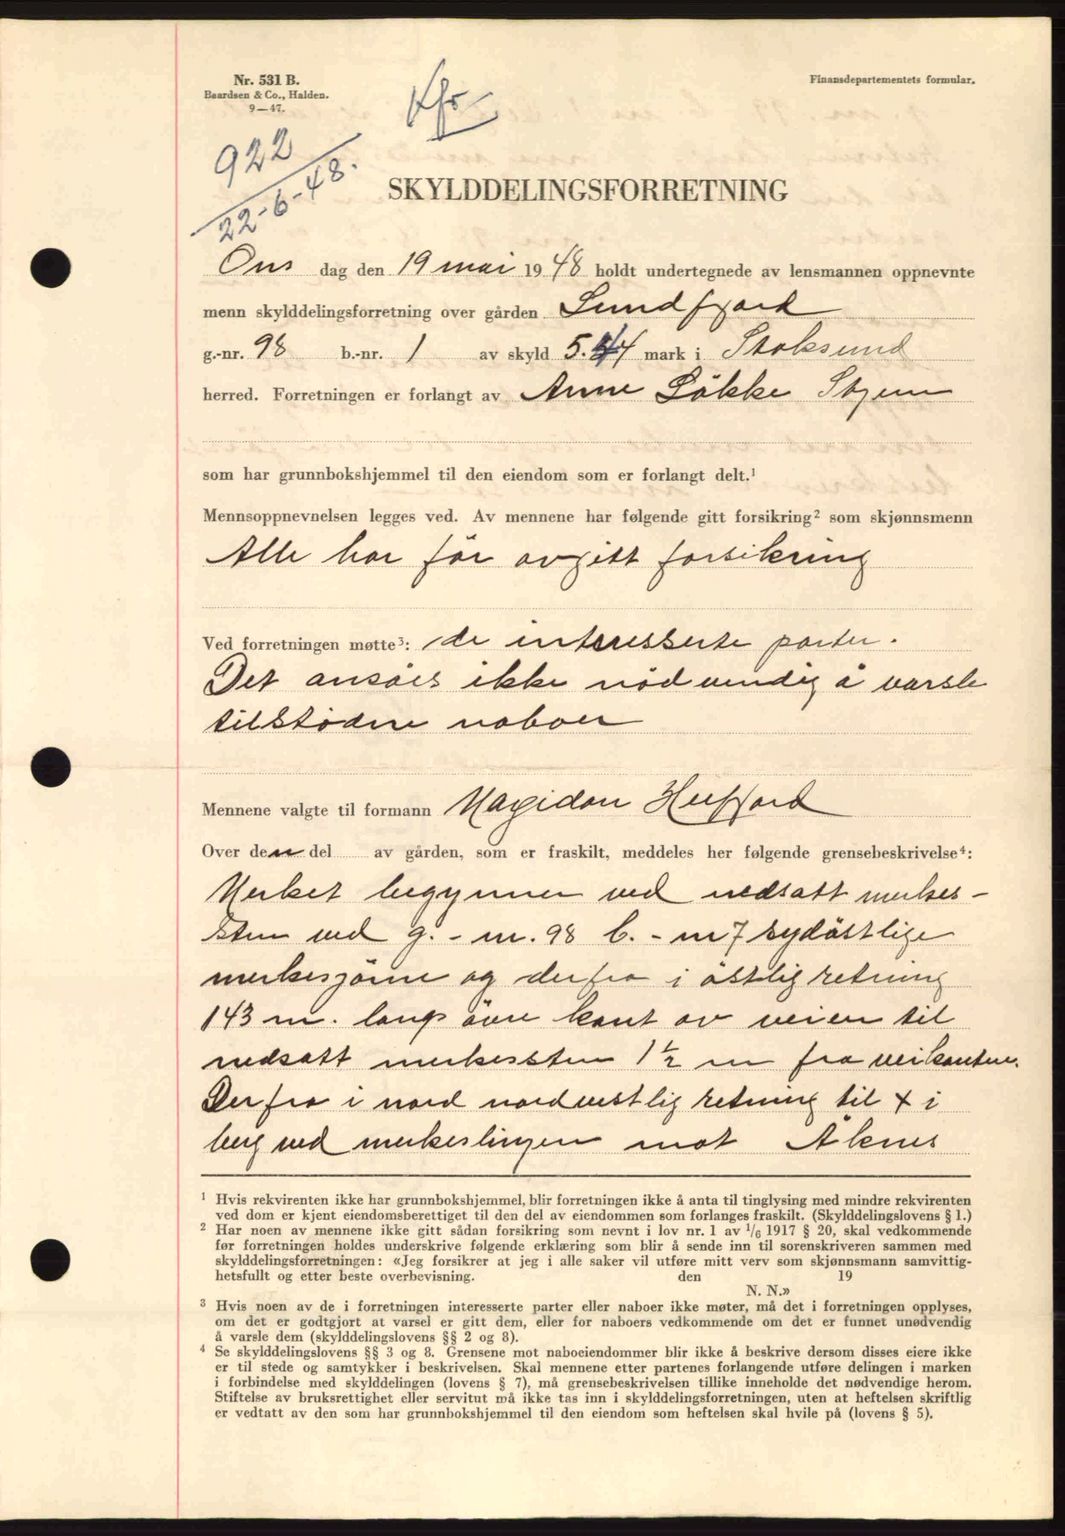 Nr. 531 B.
Baardsen & Co., Halden.
9—47.
Finansdepartementets formular.
Kfr
922
22-6-48.
SKYLDDELINGSFORRETNING
Ons dag den 19 mai 1948 holdt undertegnede av lensmannen oppnevnte
menn skylddelingsforretning over gården Sundfjord
g.-nr. 98 b.-nr. 1 av skyld 5.44 mark i Stoksund
herred. Forretningen er forlangt av Anne Løkke Stjern
som har grunnbokshjemmel til den eiendom som er forlangt delt.¹
Mennsoppnevnelsen legges ved. Av mennene har følgende gitt forsikring² som skjønnsmenn
Alle har för avgitt forsikring
Ved forretningen møtte³: de intresserte parter.
Det ansåes ikke nödvendig å varsle
tilstödne naboer
Mennene valgte til formann Magidon Hufjord
Over den del av gården, som er fraskilt, meddeles her følgende grensebeskrivelse⁴:
Merket begynner ved nedsatt merkes-
sten ved g.-nr. 98 b.-nr 7 sydöstlige
merkesjörne og derfra i östlig retning
143 m. langs övre kant av veien til
nedsatt merkessten 1½ m fra veikanten.
Derfra i nord nordvestlig retning til x i
berg ved merkeslinjen mot Åknes
¹ Hvis rekvirenten ikke har grunnbokshjemmel, blir forretningen ikke å anta til tinglysing med mindre rekvirenten
ved dom er kjent eiendomsberettiget til den del av eiendommen som forlanges fraskilt. (Skylddelingslovens § 1.)
² Har noen av mennene ikke gitt sådan forsikring som nevnt i lov nr. 1 av 1/6 1917 § 20, skal vedkommende
før forretningen holdes underskrive følgende erklæring som blir å sende inn til sorenskriveren sammen med
skylddelingsforretningen: «Jeg forsikrer at jeg i alle saker vil utføre mitt verv som skjønnsmann samvittig-
hetsfullt og etter beste overbevisning. den 19
N. N.»
³ Hvis noen av de i forretningen interesserte parter eller naboer ikke møter, må det i forretningen opplyses,
om det er godtgjort at varsel er gitt dem, eller for naboers vedkommende om det er funnet unødvendig
å varsle dem (skylddelingslovens §§ 2 og 8).
⁴ Se skylddelingslovens §§ 3 og 8. Grensene mot naboeiendommer blir ikke å beskrive dersom disses eiere ikke
er til stede og samtykker i beskrivelsen. Skal mennene etter partenes forlangende utføre delingen i marken
i forbindelse med skylddelingen (lovens § 7), må grensebeskrivelsen tillike inneholde det nødvendige herom.
Stiftelse av bruksrettighet eller servitut må ikke tas inn i skylddelingsforretningen, uten at heftelsen skriftlig
er vedtatt av den som har grunnbokshjemmel til den eiendom som heftelsen skal hvile på (lovens § 5).